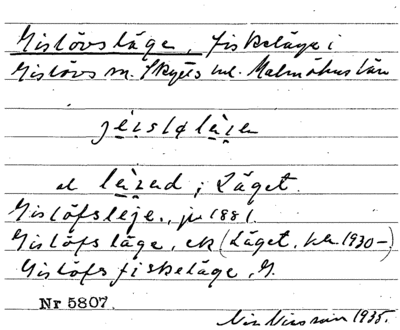 Gislövs läge, fiskeläge i
Gislövs sn. Skytts hd. Malmöhus län
jeislø läzen
el läzed, Läget.
Gislöfsleje, ju 1881.
Gislöfs läge, ek (Läget, 1930-)
Gislöfs fiskeläge, G.
Nr 5807.
Nils Nilsson 1935.